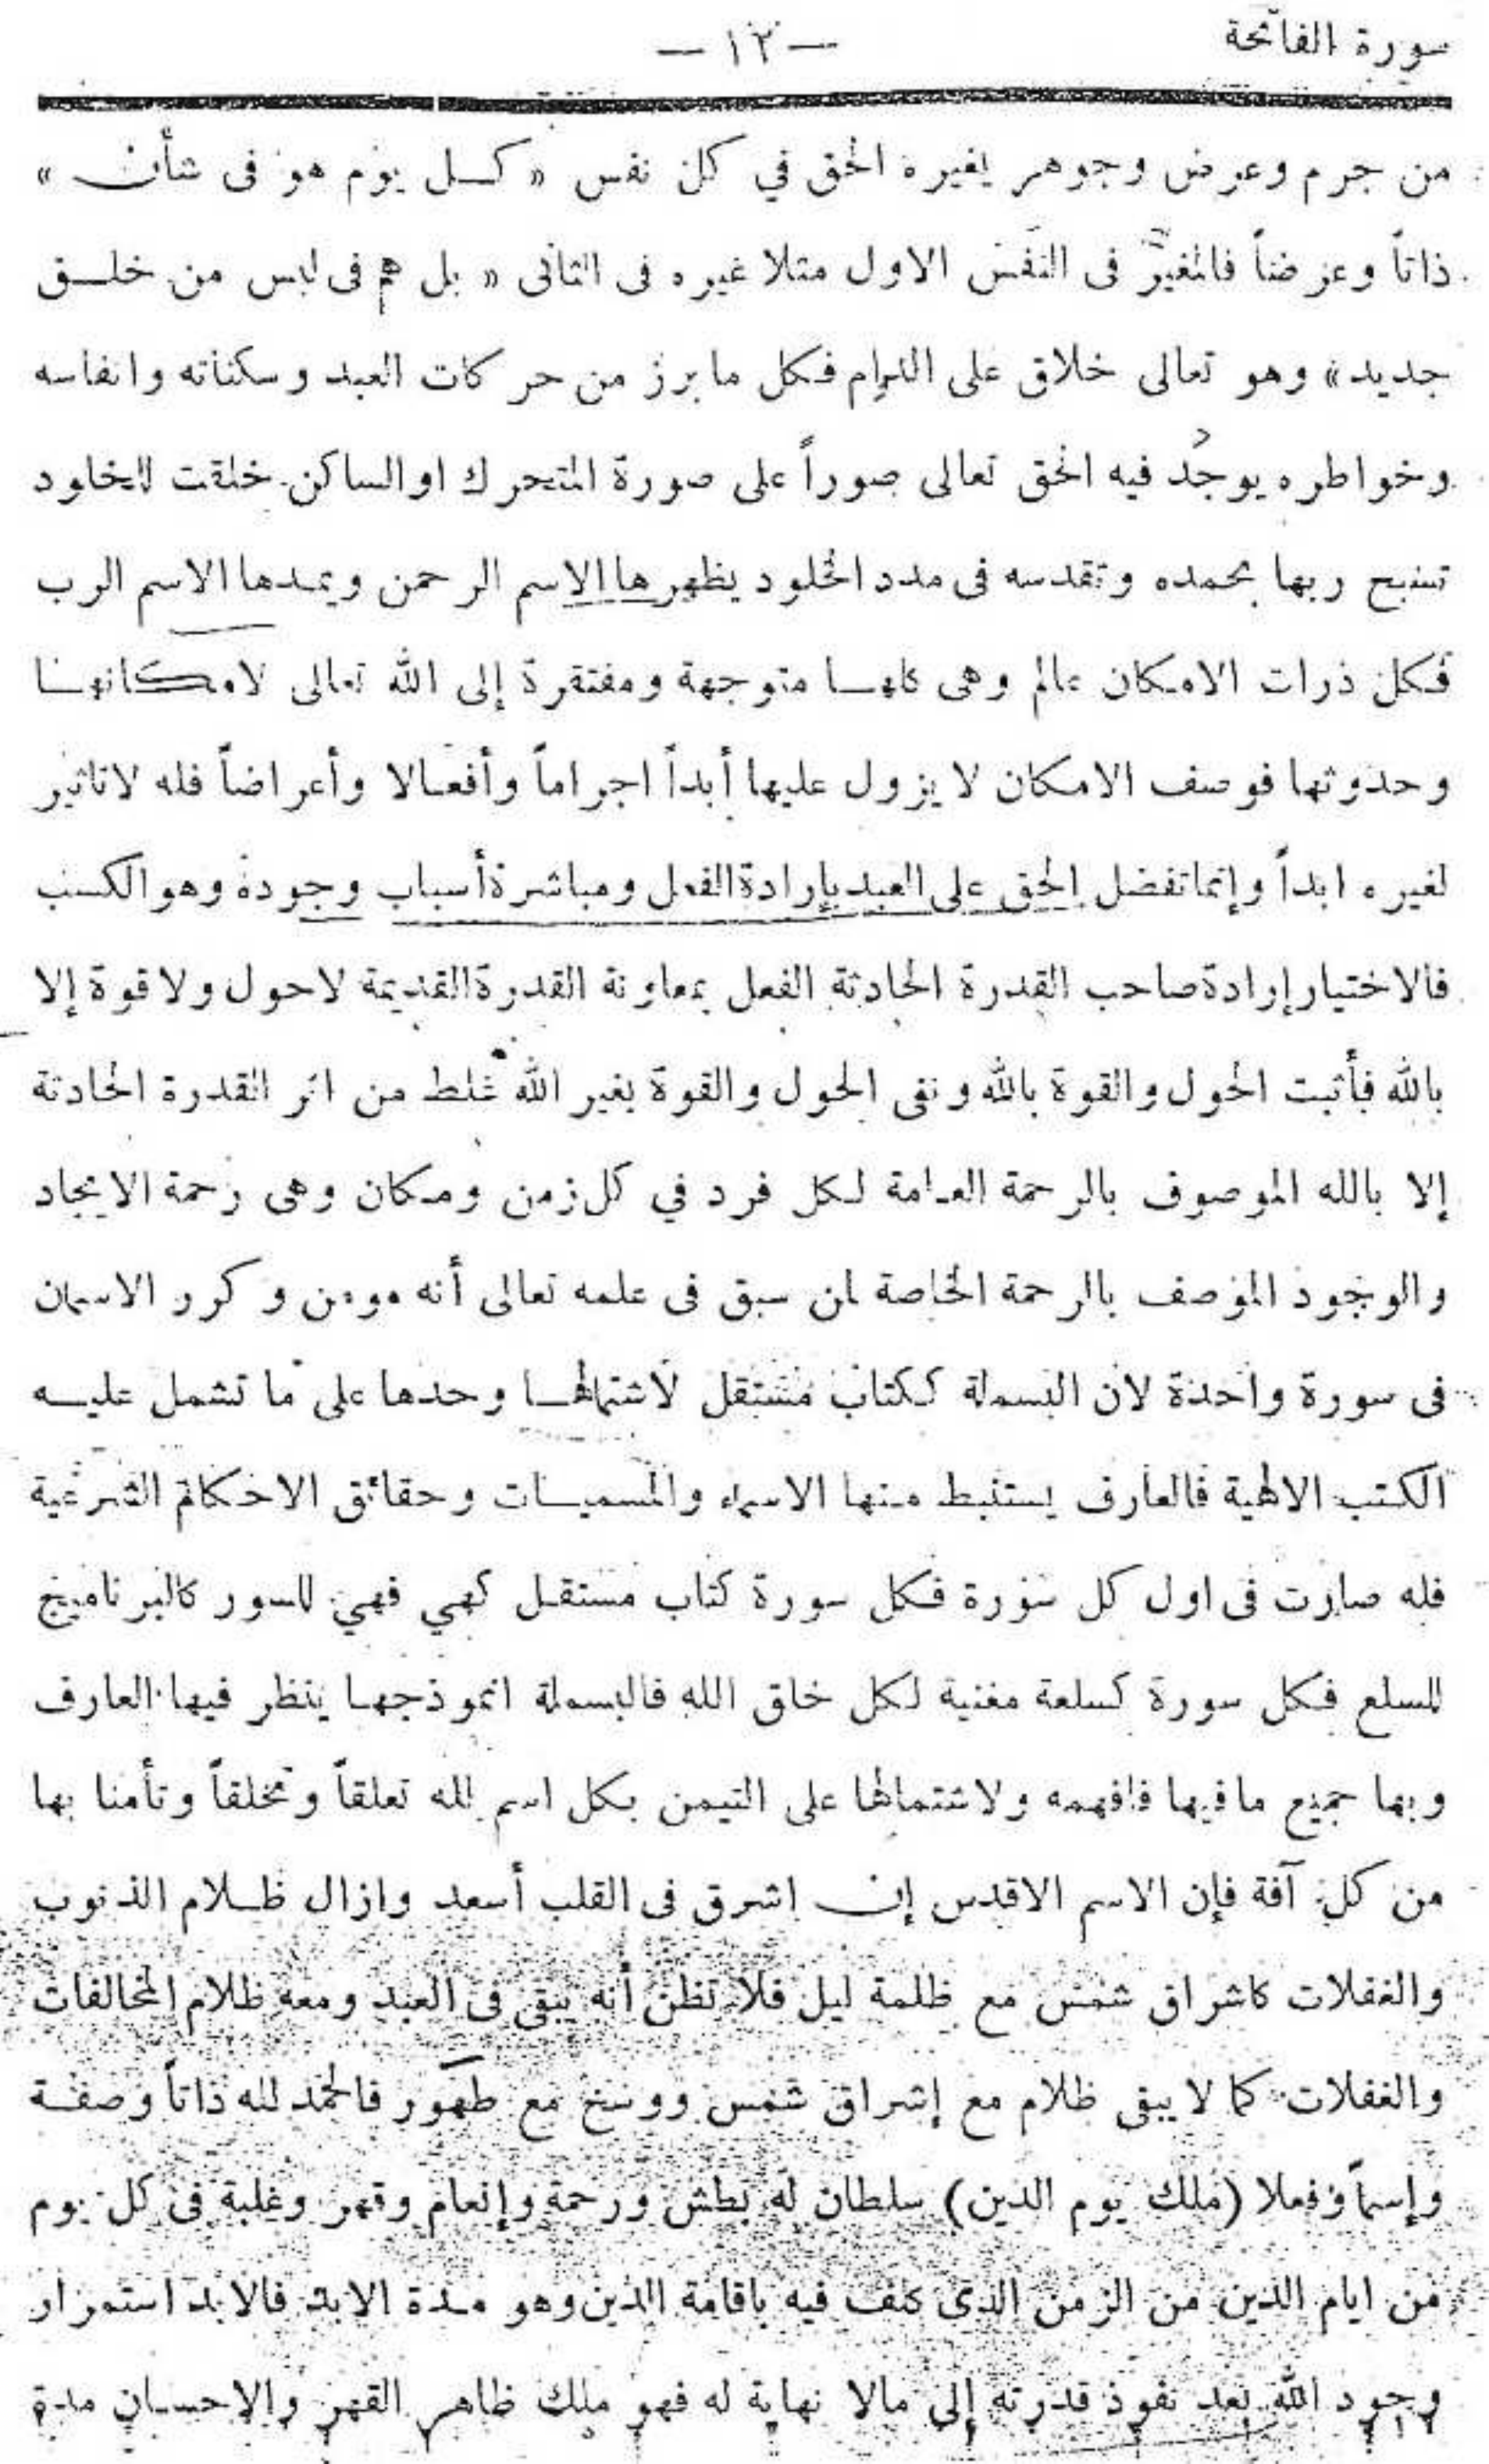 سورة الفاتحة
— ١٢ —
من جرم وعرض وجوهر يغيره الحق في كل نفس « كل يوم هو فى شأن »
ذاتاً وعرضاً فالمغيَّر فى النفَس الاول مثلا غيره فى الثانى « بل هم فى لبس من خلق
جديد» وهو تعالى خلاق على الدوام فكل ما برز من حركات العبد وسكناته وانفاسه
وخواطره يوجُد فيه الحق تعالى صوراً على صورة المتحرك او الساكن خلقت للخلود
تسبح ربها بحمده وتقدسه فى مدد الخلود يظهرها الاسم الرحمن ويمدها الاسم الرب
فكل ذرات الامكان عالم وهى كلها متوجهة ومفتقرة إلى الله تعالى لامكانها
وحدوثها فوصف الامكان لا يزول عليها أبداً اجراماً وأفعالا وأعراضاً فله لا تاثير
لغيره ابداً وإنما تفضل الحق على العبد بإرادة الفعل ومباشرة أسباب وجوده وهو الكسب
فالاختيار إرادة صاحب القدرة الحادثة الفعل بمعاونة القدرة القديمة لا حول ولا قوة إلا
بالله فأثبت الحول والقوة بالله ونفى الحول والقوة بغير الله غلط من اثر القدرة الحادثة
إلا بالله الموصوف بالرحمة العامة لكل فرد في كل زمن ومكان وهى رحمة الايجاد
والوجود الموصف بالرحمة الخاصة لمن سبق فى علمه تعالى أنه مومن وكرر الاسمان
فى سورة واحدة لان البسملة ككتاب مستقل لاشتمالها وحدها على ما تشمل عليه
الكتب الالهية فالعارف يستنبط منها الاسماء والمسميات وحقائق الاحكام الشرعية
فله صارت فى اول كل سورة فكل سورة كتاب مستقل كهي فهي للسور كالبرناميج
للسلع فكل سورة كسلعة مغنية لكل خلق الله فالبسملة انموذجها ينظر فيها العارف
وبها جميع ما فيها فافهمه ولاشتمالها على التيمن بكل اسم لله تعلقاً وتخلقاً وتأمنا بها
من كل آفة فإن الاسم الاقدس إن اشرق فى القلب أسعد وازال ظلام الذنوب
والغفلات كاشراق شمس مع ظلمة ليل فلا تظن أنه يبقى فى العبد ومعه ظلام المخالفات
والغفلات كما لا يبقى ظلام مع إشراق شمس ووسخ مع طهور فالحمد لله ذاتاً وصفة
وإسماً وفعلا (ملك يوم الدين) سلطان له بطش ورحمة وإنعام وقهر وغلبة فى كل يوم
من ايام الدين من الزمن الذى كلف فيه باقامة الدين وهو مدة الابد فالابد استمرار
وجود الله بعد نفوذ قدرته إلى مالا نهاية له فهو ملك ظاهر القهر والإحسان مدة